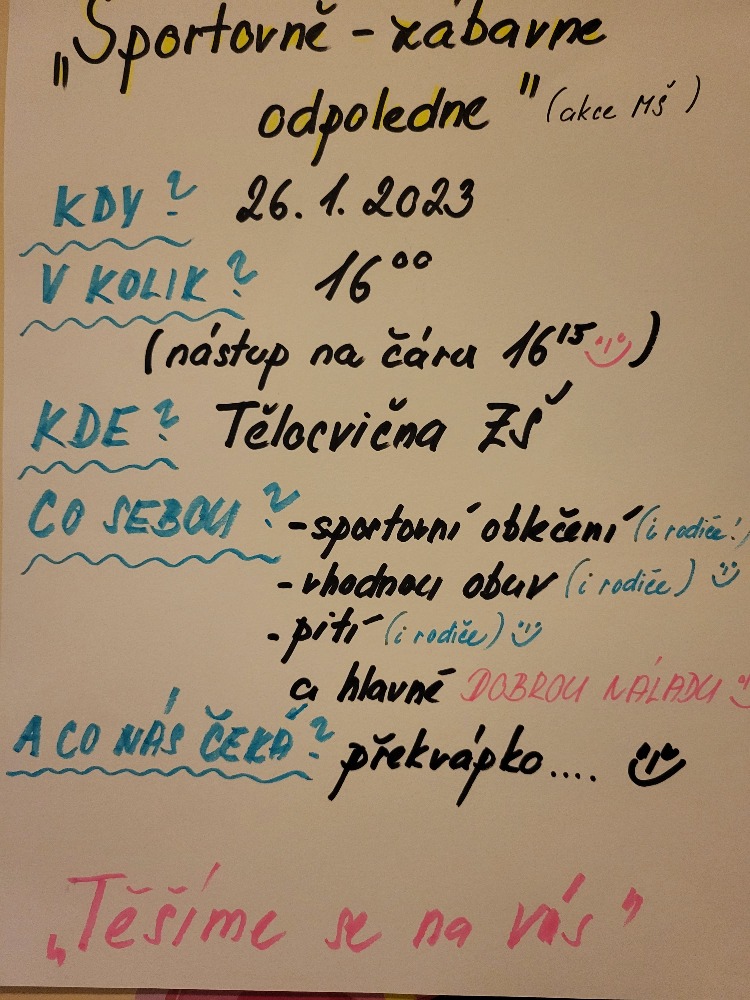 „Sportovně - zábavne
odpoledne" (akce MŠ)
KDY? 26. 1. 2023
V KOLIK? 16⁰⁰
(nástup na čáru 16¹⁵)
KDE? Tělocvična ZŠ
CO SEBOU? - sportovní oblečení (i rodiče!)
- vhodnou obuv (i rodiče)
- pití (i rodiče)
a hlavně DOBROU NÁLADU
A CO NÁS ČEKÁ? překvápko....
„Těšíme se na vás"